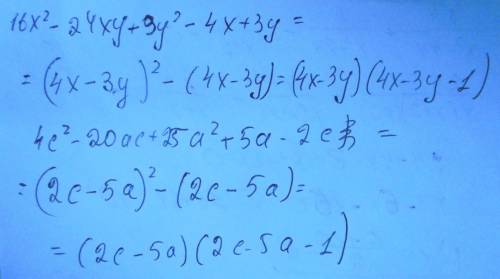 16x² - 24xy + 9y² - 4x + 3y =
= (4x - 3y)² - (4x - 3y) = (4x - 3y) (4x - 3y - 1)
4c² - 20ac + 25a² + 5a - 2c =
= (2c - 5a)² - (2c - 5a) =
= (2c - 5a) (2c - 5a - 1)